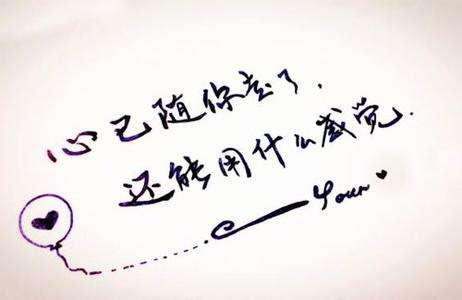 心已随你去了.
还能用什么感觉.